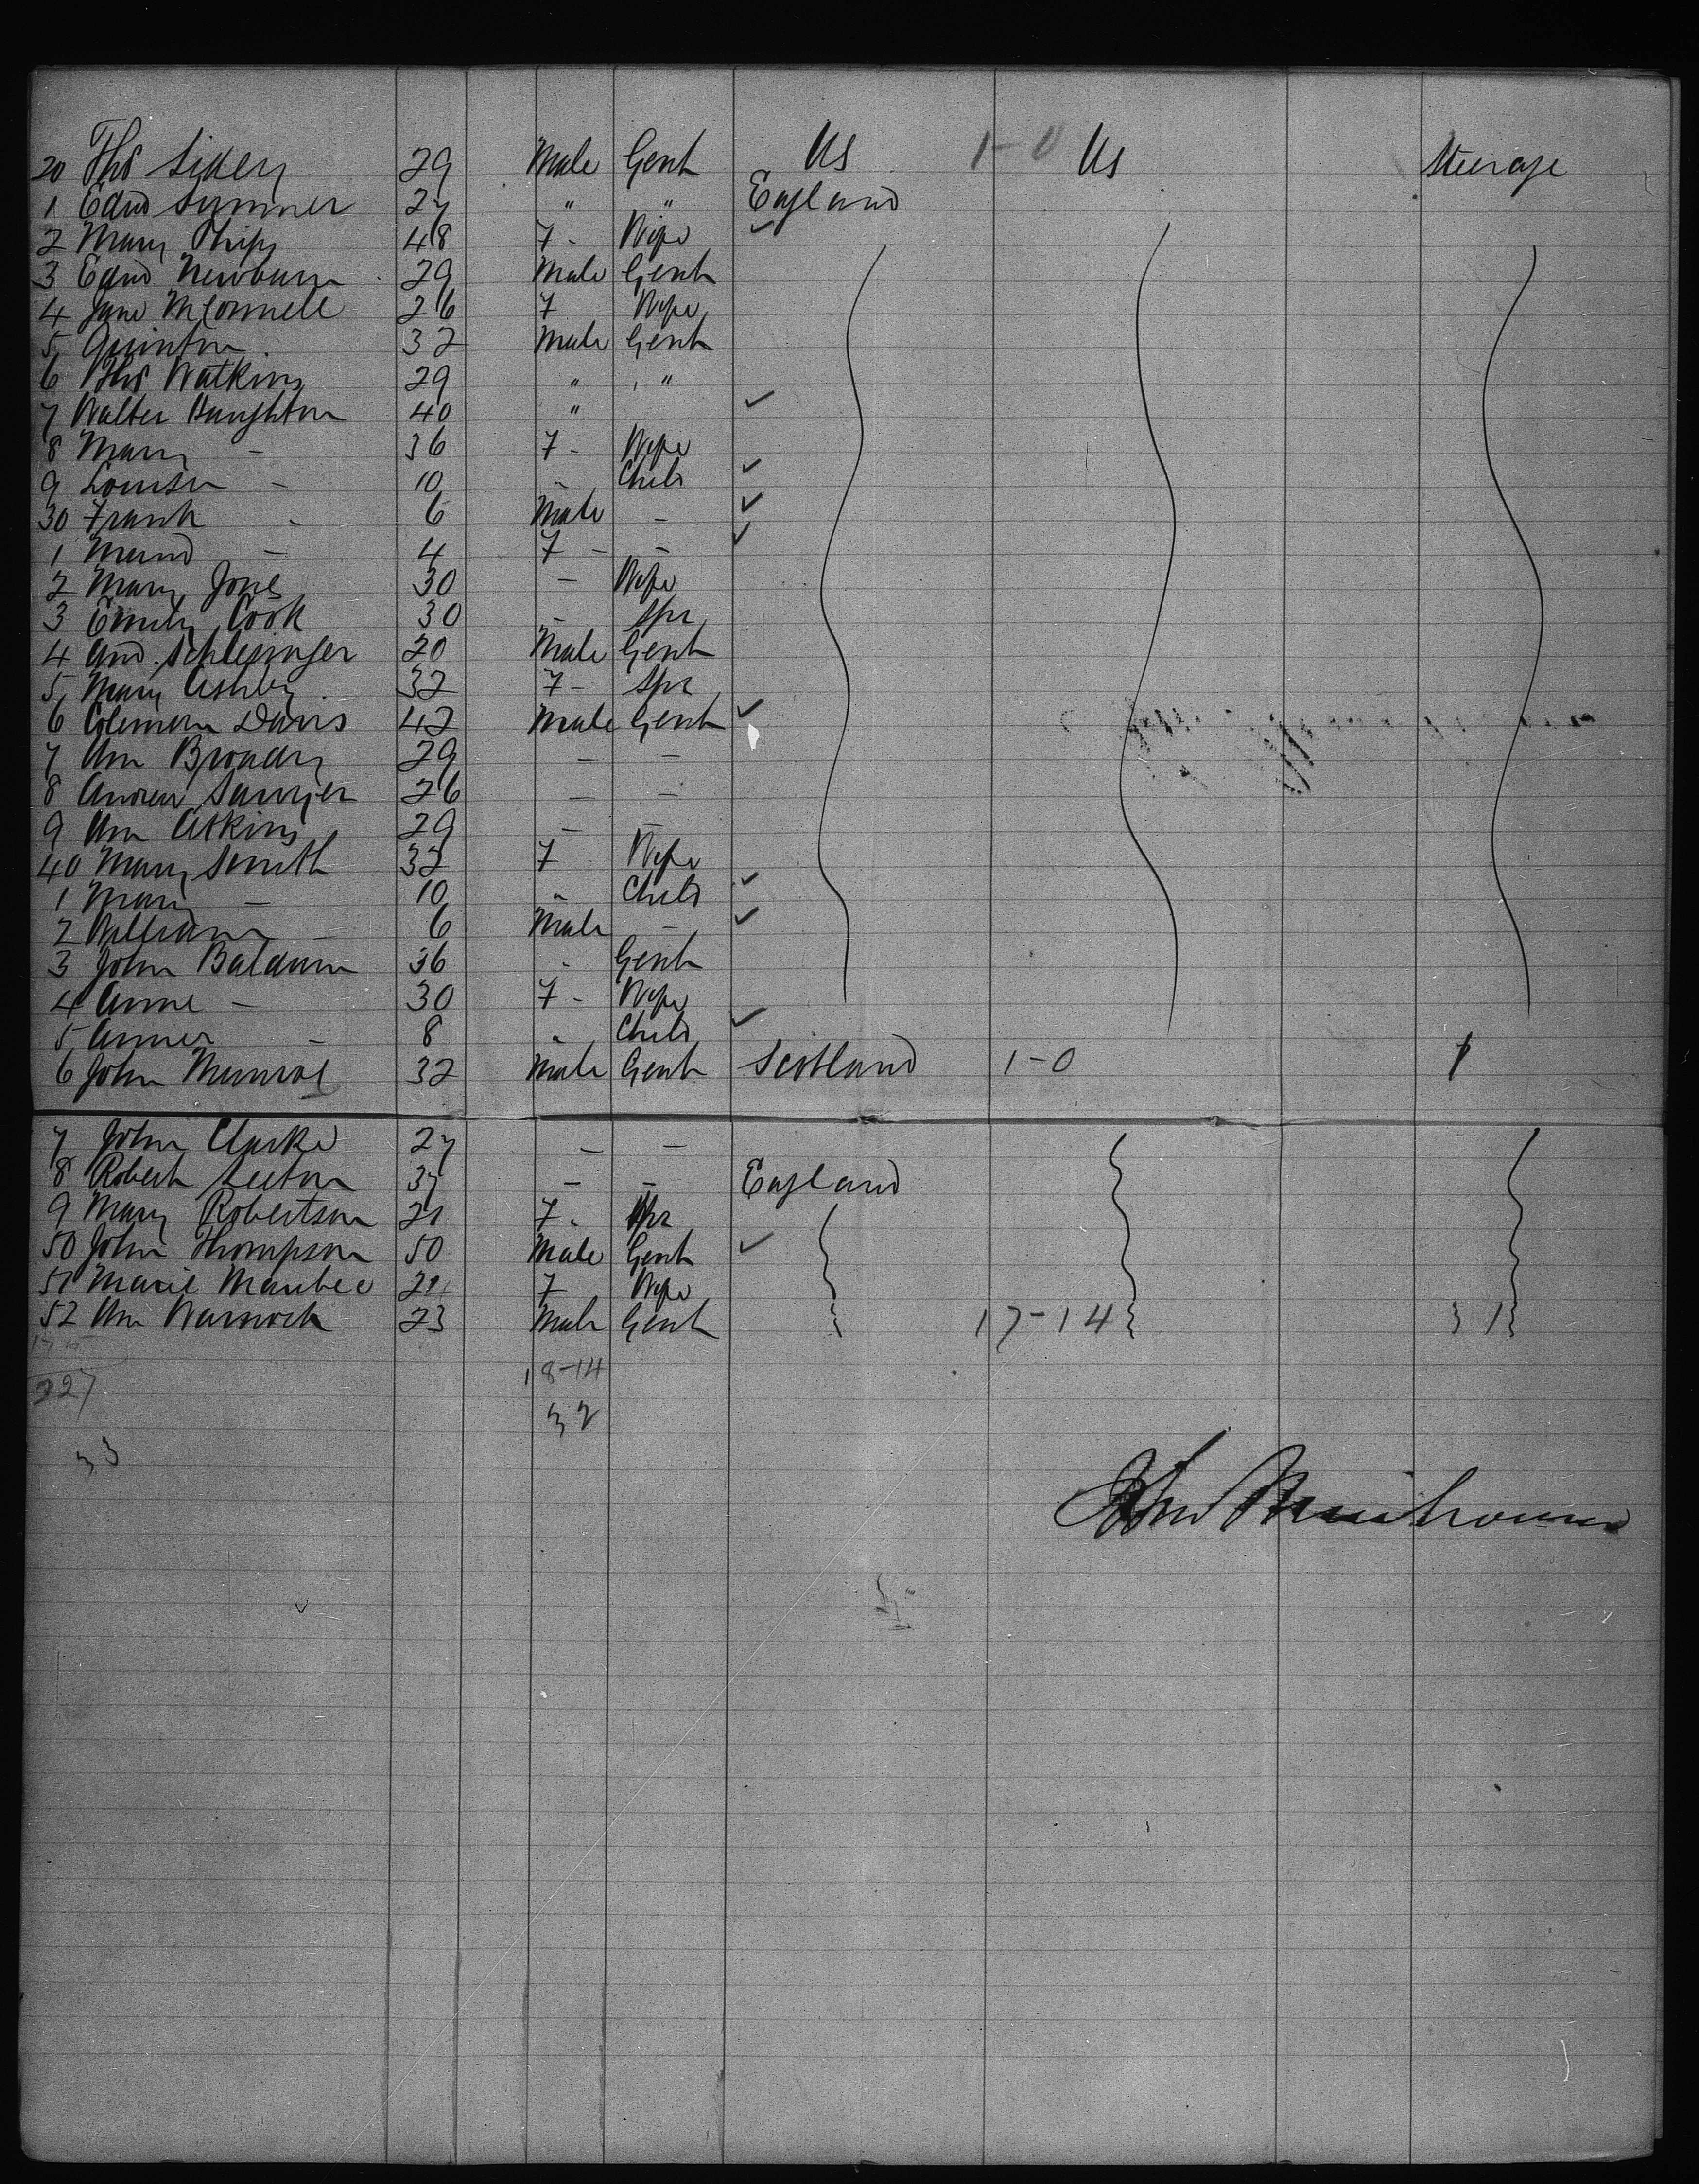 20 Thos 29 Male Gent US 1-0 US Steerage
1 Edwd Sumner 27 " " England
2 Mary Phips 48 F - Wife ✓
3 Edwd Newburn 29 Male Gent
4 Jane McConnell 26 F Wife
5 Quinton 32 Male Gent
6 Thos Watkins 29 " "
7 Walter Haughton 40 " ✓
8 Mary - 36 F - Wife
9 Louisa - 10 - Child ✓
30 Frank - 6 Male - ✓
1 Maud - 4 F - - ✓
2 Mary Jones 30 - Wife
3 Emily Cook 30 - Spr
4 And. Schlesinger 20 Male Gent
5 Mary Ashby 32 F - Spr
6 Coleman Davis 42 Male Gent ✓
7 Wm Broady 29 - -
8 Andrew Sawyer 26 - -
9 Wm Atkins 29 - -
40 Mary Smith 32 F Wife
1 Mary - 10 " Child ✓
2 William - 6 Male - ✓
3 John Baldwin 36 - Gent
4 Anne - 30 F - Wife
5 - 8 " Child ✓
6 John Munroe 32 Male Gent Scotland 1-0 1
7 John Clarke 27 - -
8 Robert 37 - - England
9 Mary Robertson 21 F - Spr
50 John Thompson 50 Male Gent ✓
51 Marie F Wife
52 Wm Warnock 23 Male Gent 17-14 31
18-14
227
32
33
John